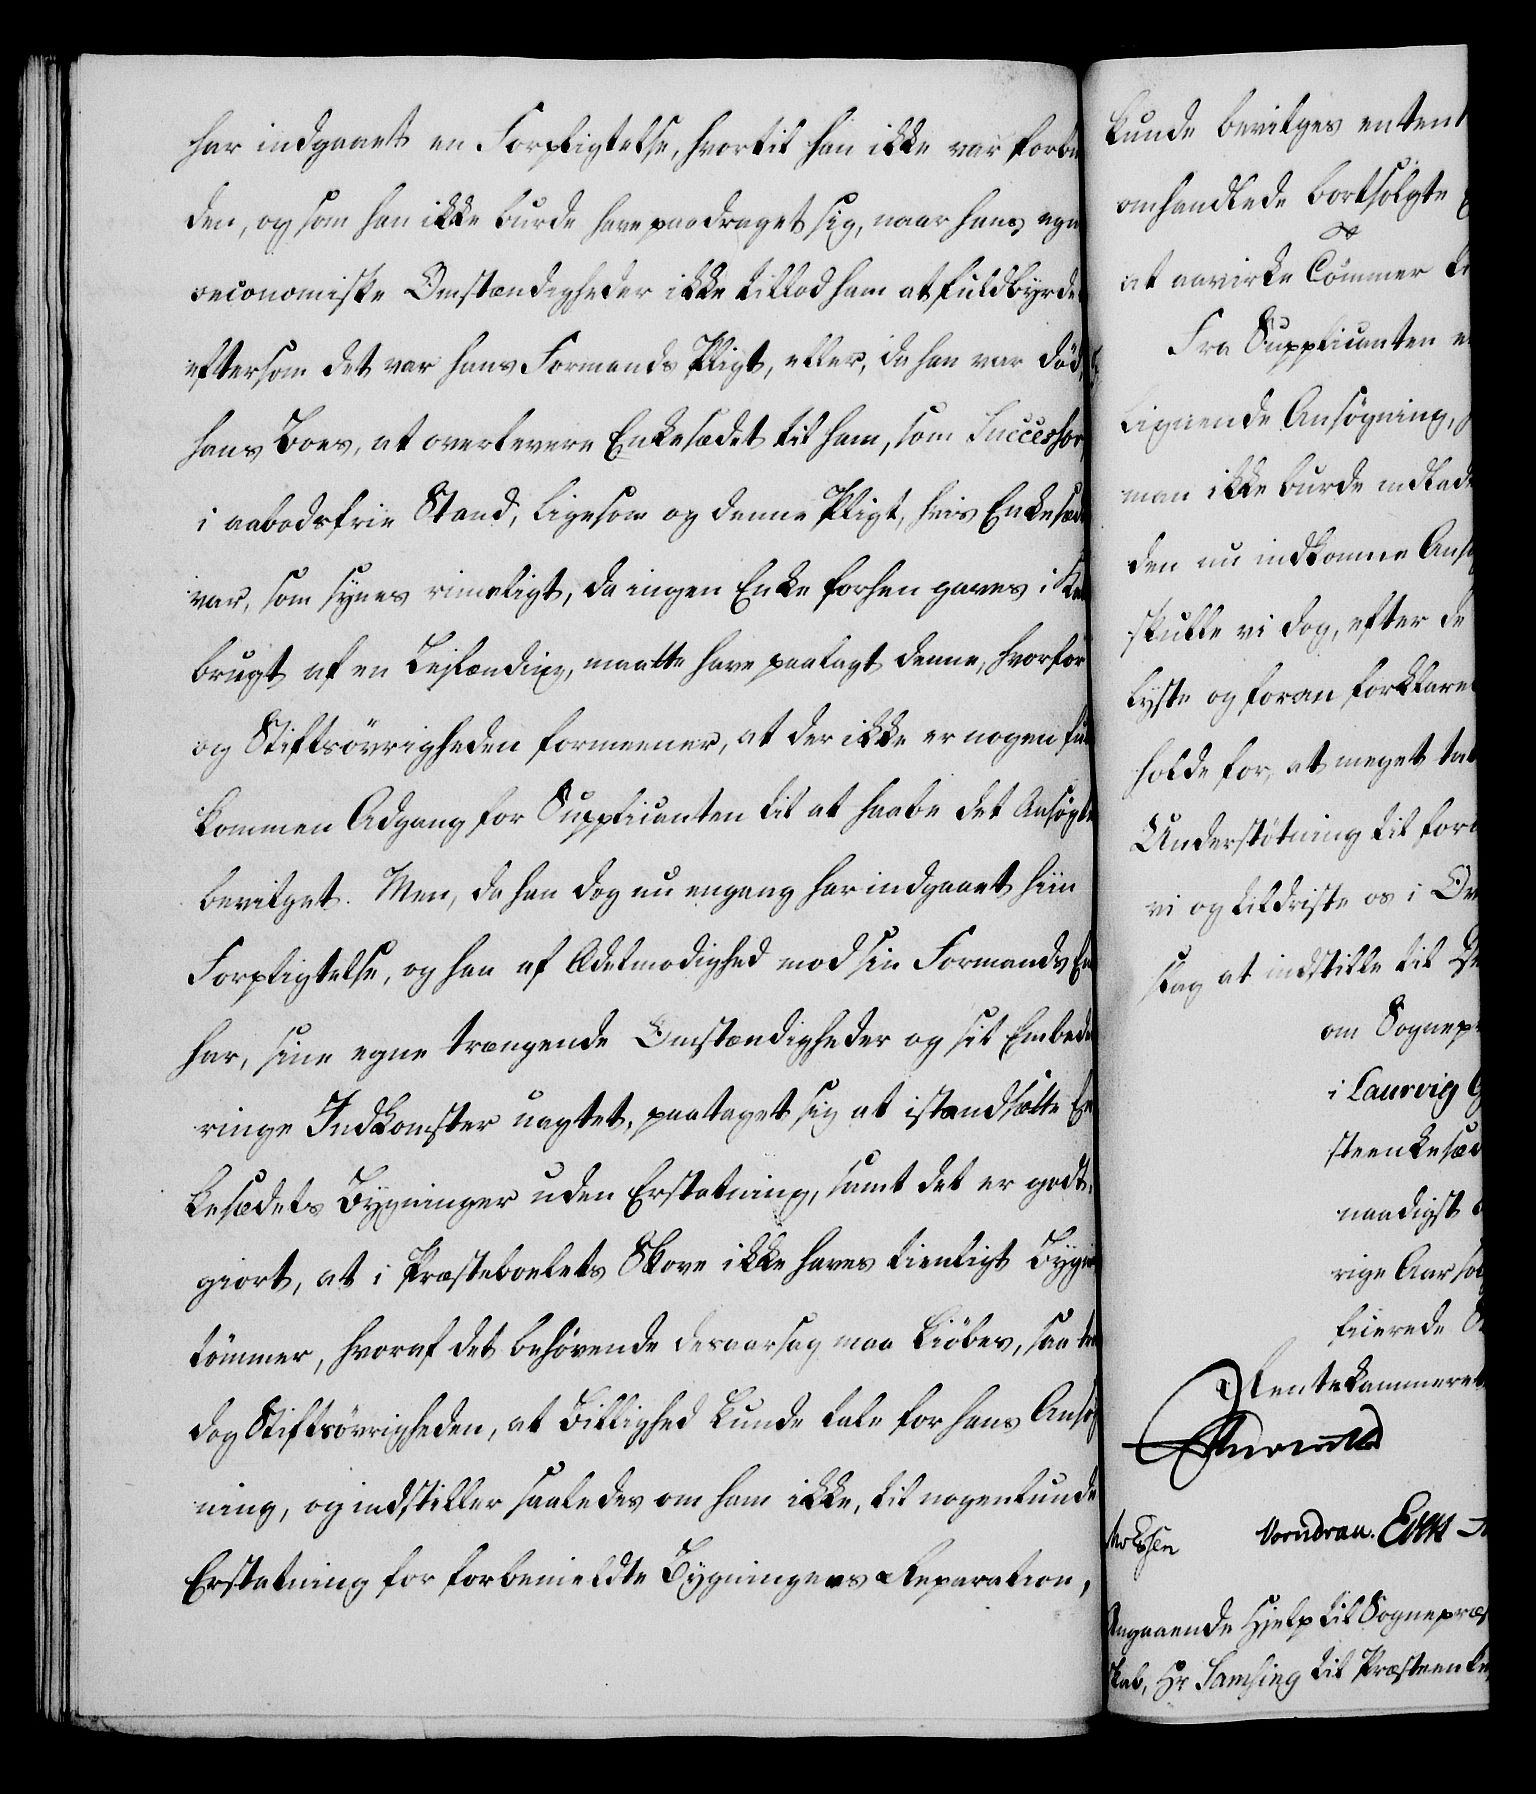 har indgaaet en Forpligtelse, hvortil han ikke var forbu
den, og som han ikke burde have paadraget sig, naar hans egne
oeconomiske Omstændigheder ikke tillod ham at fuldbyrde
eftersom det var hans Formands Pligt, eller, da han var död,
hans Boes, at overlevere Enkesædet til ham, som Successor,
i aabodsfrie Stand, ligesom og denne Pligt, hvis Enkesæde
var, som synes rimeligt, da ingen Enke forhen gaves i Ka
brugt af en Leilænding, maatte have paalagt denne, hvorfor
og Stiftsövrigheden formeener, at der ikke er nogen ful
kommen Adgang for Supplicanten til at haabe det Ansögte
bevilget. Men, da han dog nu engang har indgaaet hiin
Forpligtelse, og han af Ædelmodighed mod sin Formands En
har, sine egne trængende Omstændigheder og sit Embedes
ringe Indkomster uagtet, paataget sig at istandsætte En
kesædets Bygninger uden Erstatning, samt det er godt-
giort, at i Præsteboelets Skove ikke haves tienligt Bygnings
tömmer, hvoraf det behövende desaarsag maa kiöbes, saa tr
dog Stiftsövrigheden, at Billighed kunde tale for hans Ansög
ning, og indstiller saaledes om ham ikke, til nogenlunde
Erstatning for forbemeldte Bygningers Reparation,
kunde bevilges enten
omhandlede bortsolgte
at aavirke Tömmer
Fra Supplicanten
lignende Ansögning,
man ikke burde indlade
den nu indkomne Ansö
skulle vi dog, efter de
lyste og foran forklare
holde for, at meget tal
Understötning til for
vi og tildriste os i
slag at indstille til
om Sognepr
i Laurvig
steenkesæd
naadigst
rige Aar
feierede
Rentekammeret
Vorndran.
Angaaende Hjelp til Sognepræs
kab, Hr Samsing til Præsteenke